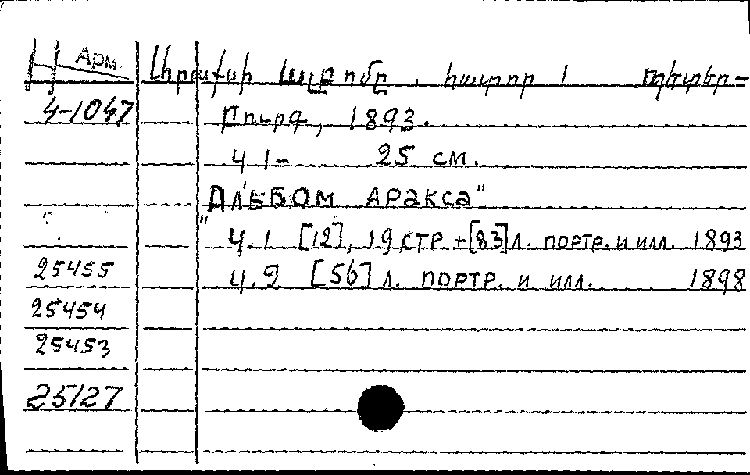 Арм. Արաքսի ալբոմը. հատոր 1 պետեր-
4-1047 բուրգ, 1893.
Ч 1- 25 см.
"Альбом Аракса"
Ч.1 [12], 19 стр + [83] л. портр. и илл. 1893
25455 Ч.2 [56] л. портр. и илл. 1898
25454
25453
25127